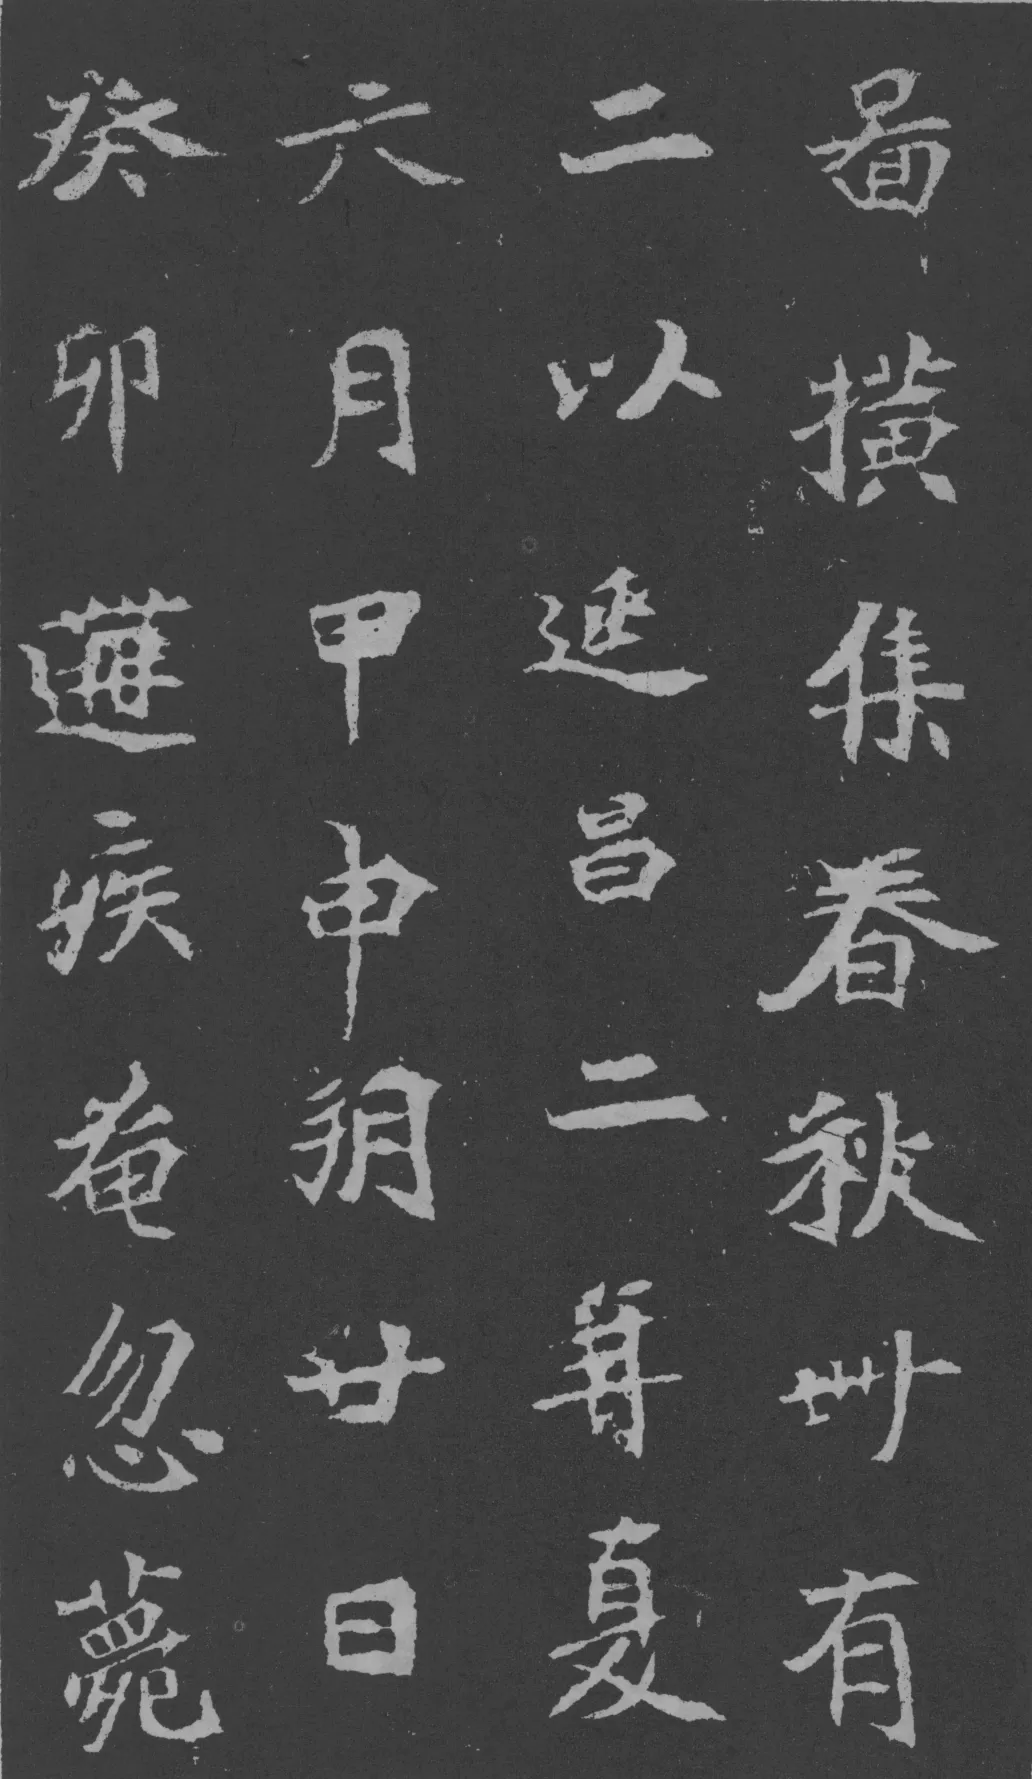 啚撗集春秋卌有
二以延昌二年夏
六月甲申朔廿日
癸卯遘疾奄忽薨